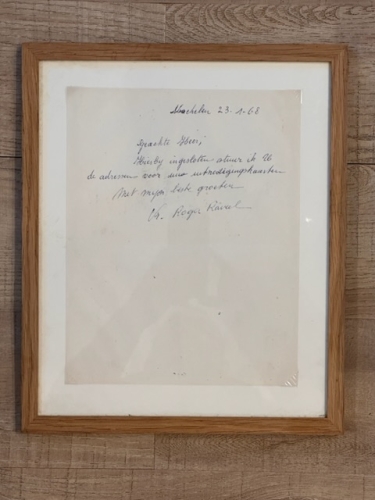 Machelen 23-1-68
Geachte Heer,
Hierby ingesloten stuur ik U
de adressen voor uitnodigingskaarten
Met mijn beste groeten
Roger Raveel